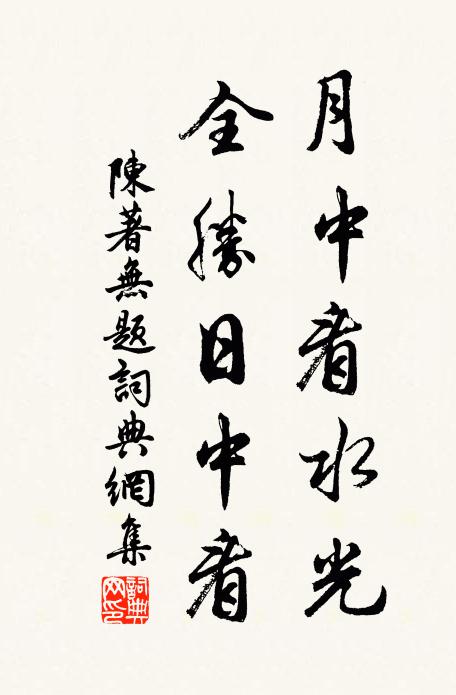 月中看水光
全勝日中看
陳著無題詞典網集
詞典网印